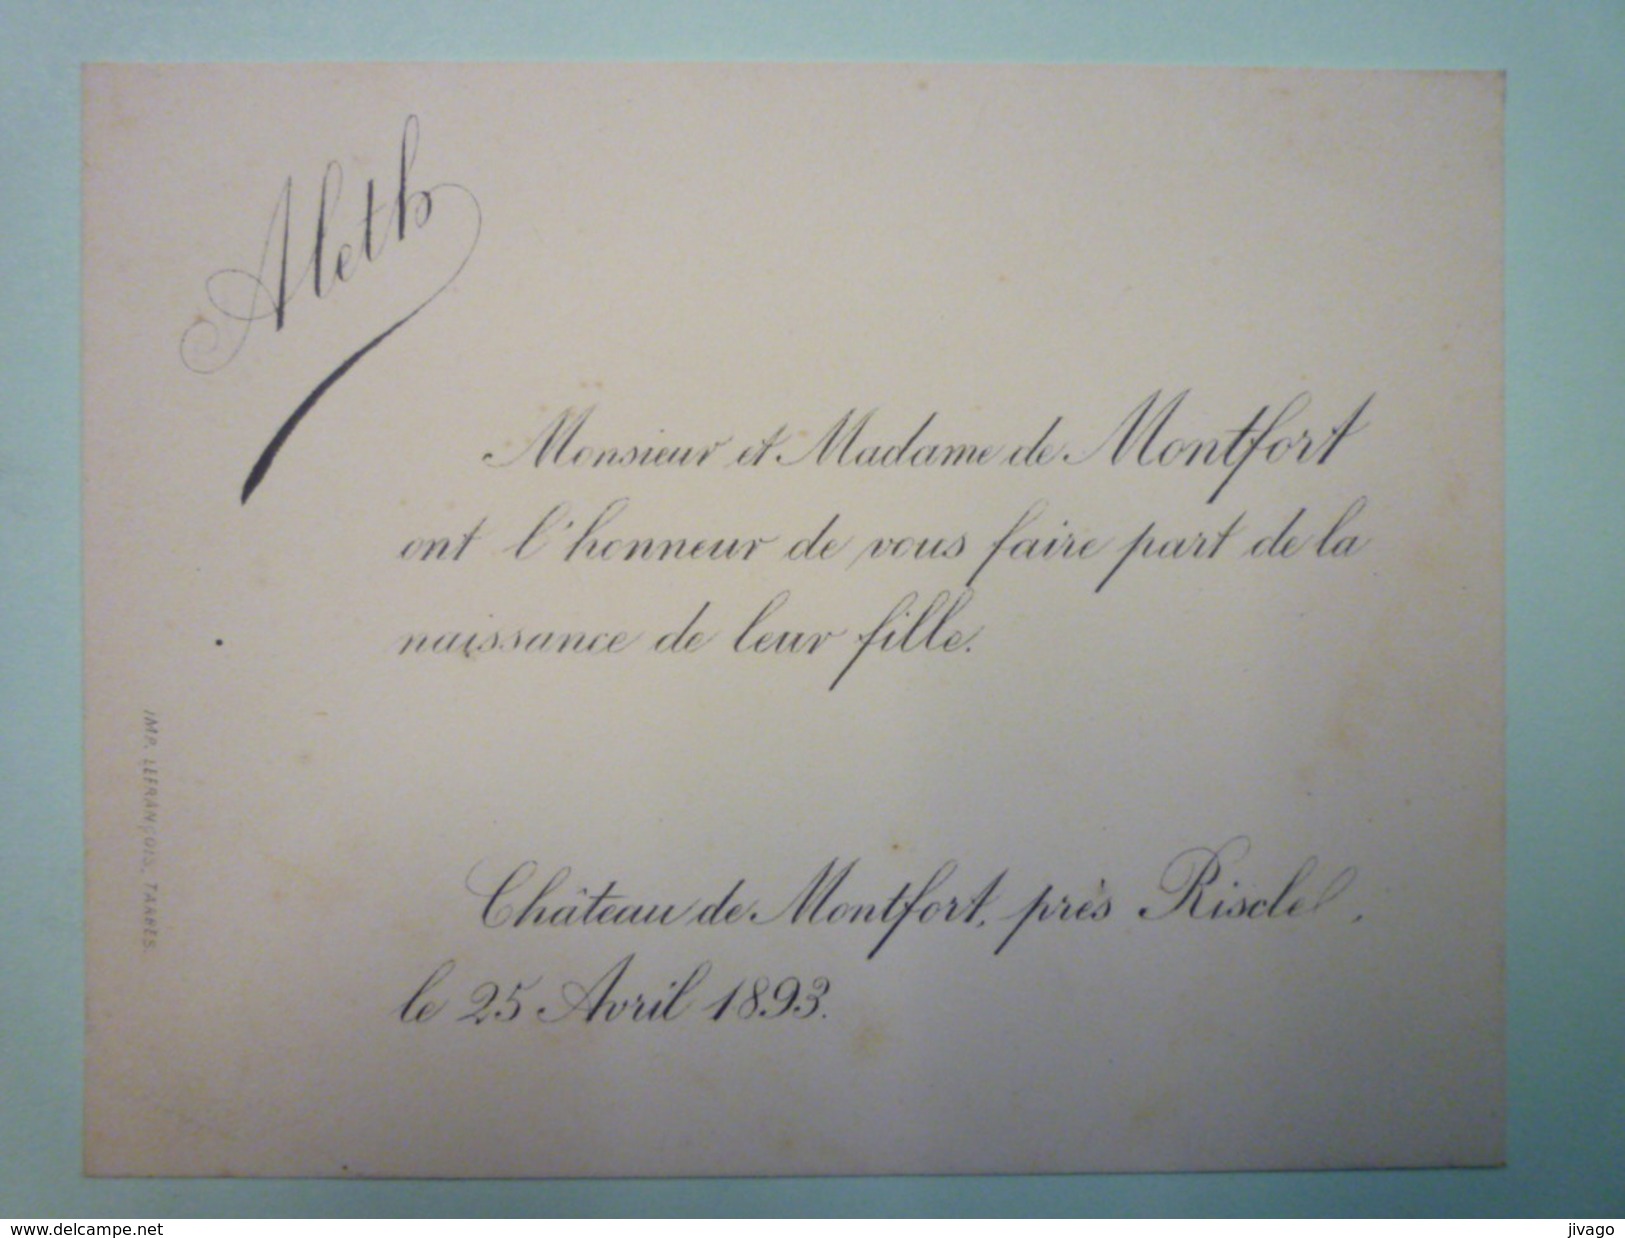 Aleth
Monsieur et Madame de Montfort
ont l'honneur de vous faire part de la
naissance de leur fille.
Château de Montfort, près Riscle,
le 25 Avril 1893.
IMP. LEFRANÇOIS, TARBES.
www.delcampe.net
jivago